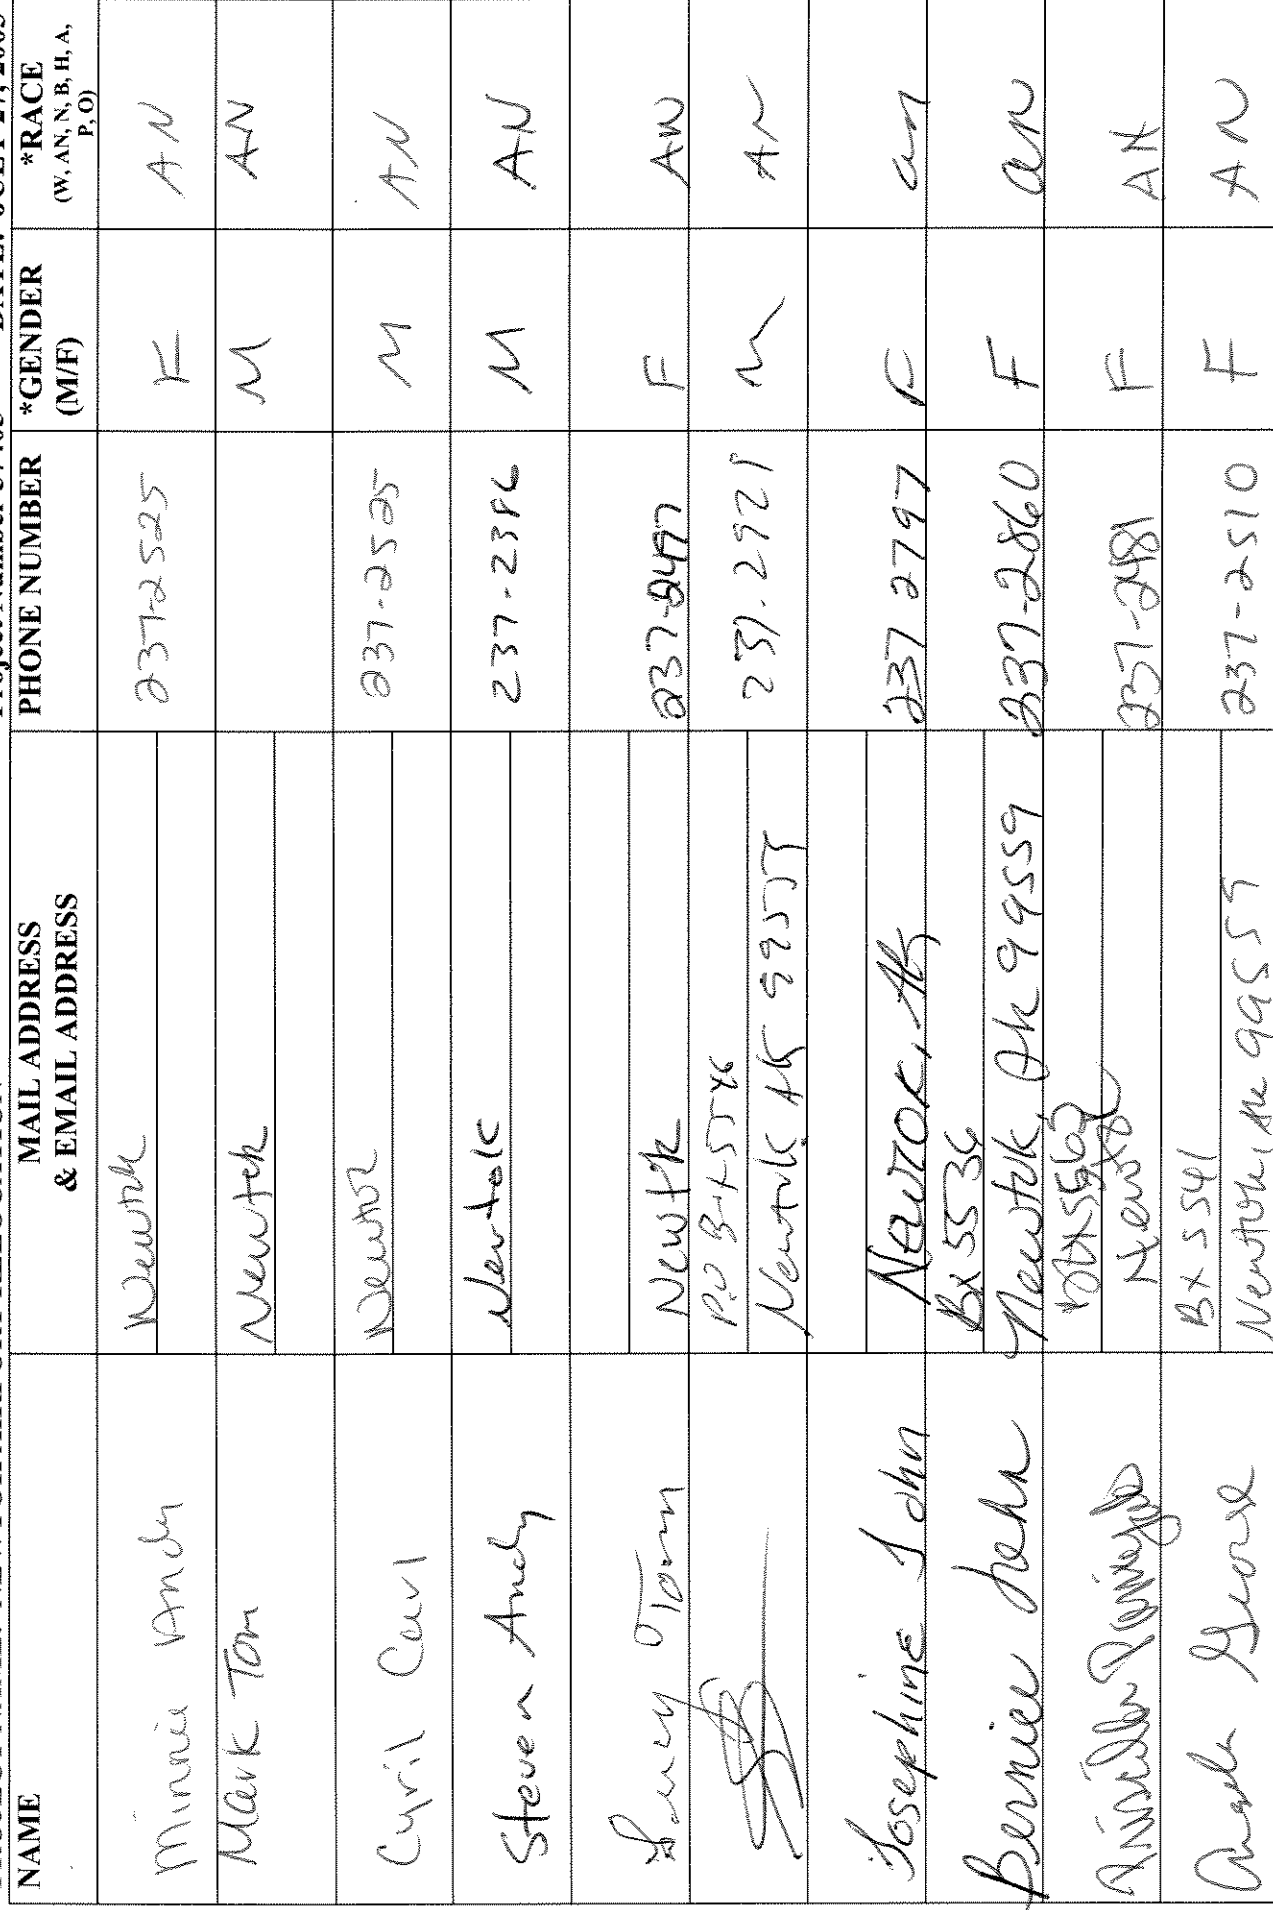 NAME
MAIL ADDRESS
& EMAIL ADDRESS
PHONE NUMBER
*GENDER
(M/F)
*RACE
(W, AN, N, B, H, A,
P, O)
Minnie Andy Newtok 237-2525 F AN
Mark Tom Newtok M AN
Cyril Carl Newtok 237-2525 M AN
Steven Andy Newtok 237-2386 M AN
Lucy Tom Newtok 237-2497 F AN
P.O Box 5546
Newtok AK 99559 237-2921 M AN
Josephine John Newtok, AK 237 2797 F an
Bx 5536
Bernice John Newtok, Ak 99559 237-2860 F an
Box 5565
Newtok 237-2481 F AN
Bx 5541
Angela George Newtok, AK 99559 237-2510 F AN